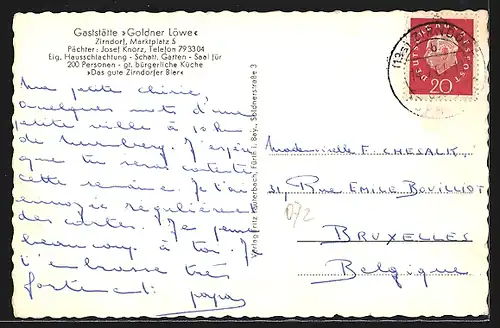 Gaststätte »Goldner Löwe«
Zirndorf, Marktplatz 5
Pächter: Josef Knorz, Telefon 793304
Eig. Hausschlachtung - Schatt. Garten - Saal für
200 Personen - gt. bürgerliche Küche
»Das gute Zirndorfer Bier«
Ma petite chérie,
Quelques mots d'une
petite ville à 10 km
de Nurnberg. J'espère
que tu seras contente
cette semaine. Je t'ai
envoyé régulièrement
des cartes. Je pense
beaucoup à toi. Je
t'embrasse très
fortement. papa
Verlag Fritz Lauterbach, Fürth i. Bay., Soldnerstraße 3
DEUTSCHE BUNDESPOST
20
(13a)
Mademoiselle F. CHESALK
31, Rue EMILE BOUILLIOT
072
BRUXELLES
Belgique